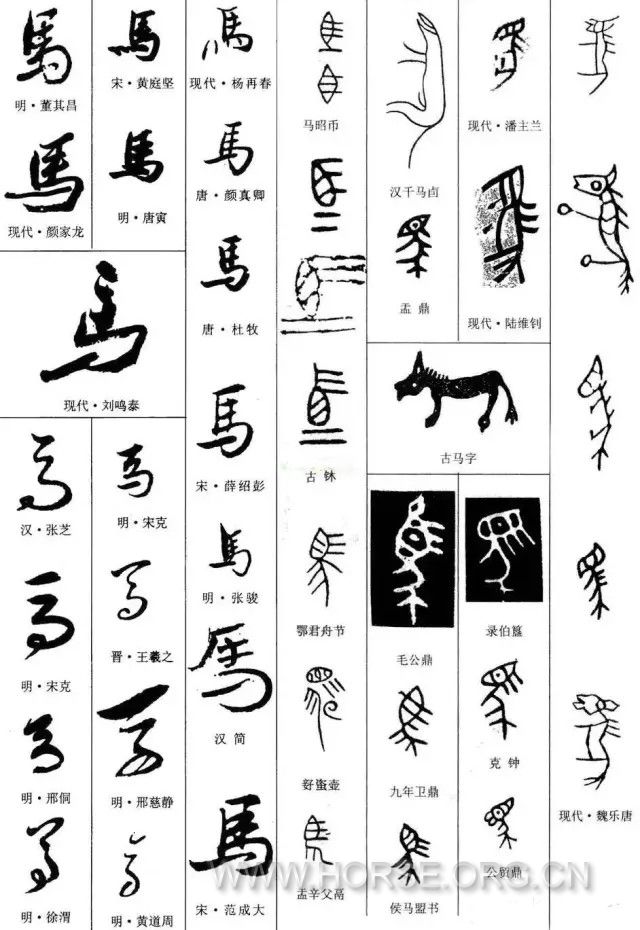 馬
明·董其昌
馬
现代·颜家龙
馬
宋·黄庭坚
馬
明·唐寅
馬
现代·刘鸣泰
馬
汉·张芝
馬
明·宋克
馬
明·邢侗
馬
明·徐渭
馬
明·宋克
馬
晋·王羲之
馬
明·邢慈静
馬
明·黄道周
馬
现代·杨再春
馬
唐·颜真卿
馬
唐·杜牧
馬
宋·薛绍彭
馬
明·张骏
馬
汉简
馬
宋·范成大
马昭币
古鉥
鄂君舟节
盂辛父鬲
汉千马卣
盂鼎
古马字
毛公鼎
九年卫鼎
侯马盟书
现代·潘主兰
现代·陆维钊
录伯簋
克钟
公贸鼎
现代·魏乐唐
WWW.HORSE.ORG.CN